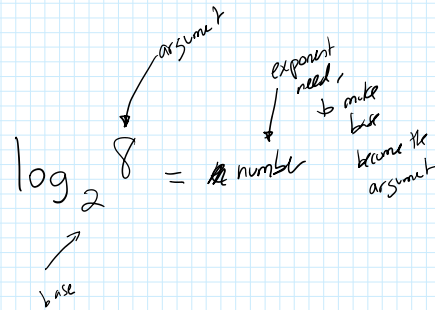 argument
exponent
need,
to make
base
become the
argument
log₂ 8 = number
base